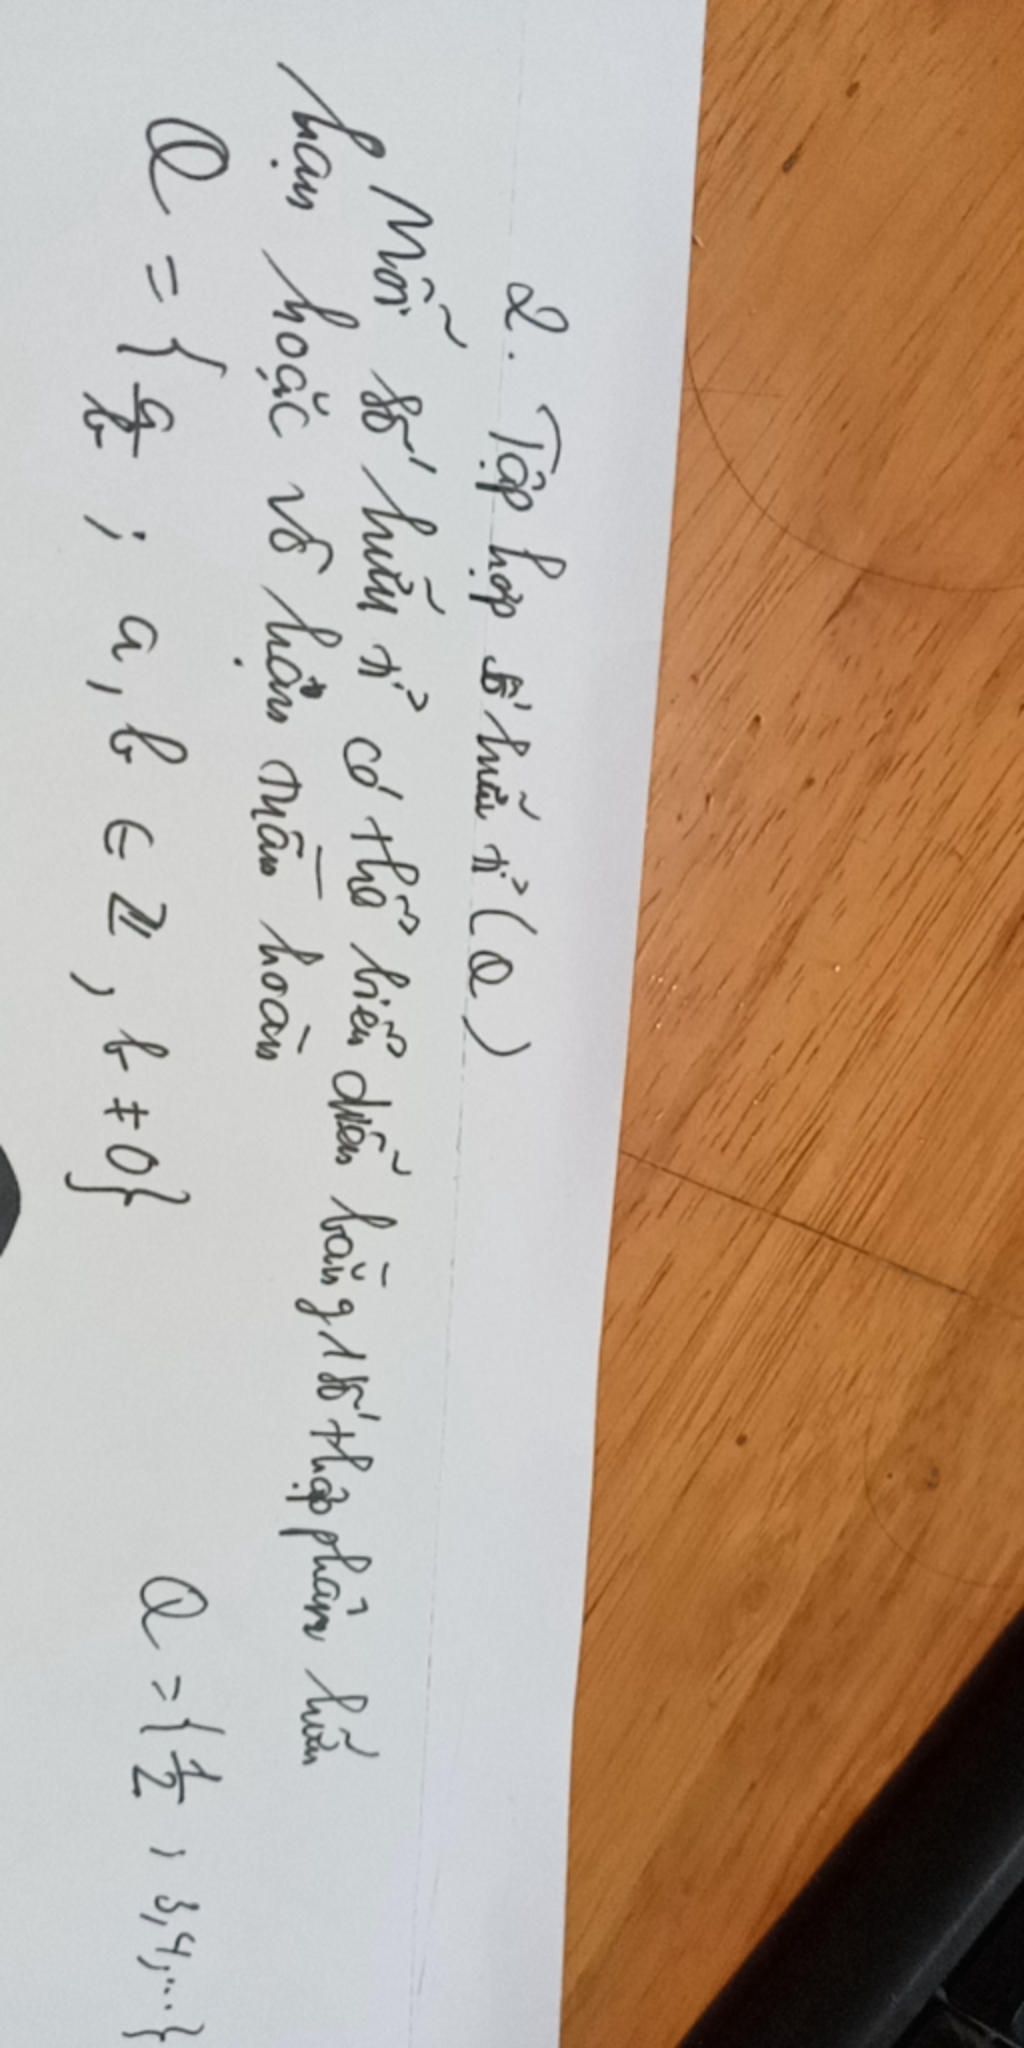 2. Tập hợp số hữu tỉ (Q)
Mỗi số hữu tỉ có thể biểu diễn bằng 1 số thập phân hữu
hạn hoặc vô hạn tuần hoàn
Q = { a/b ; a, b ∈ Z, b ≠ 0}
Q = { 1/2 , 3, 4, ... }